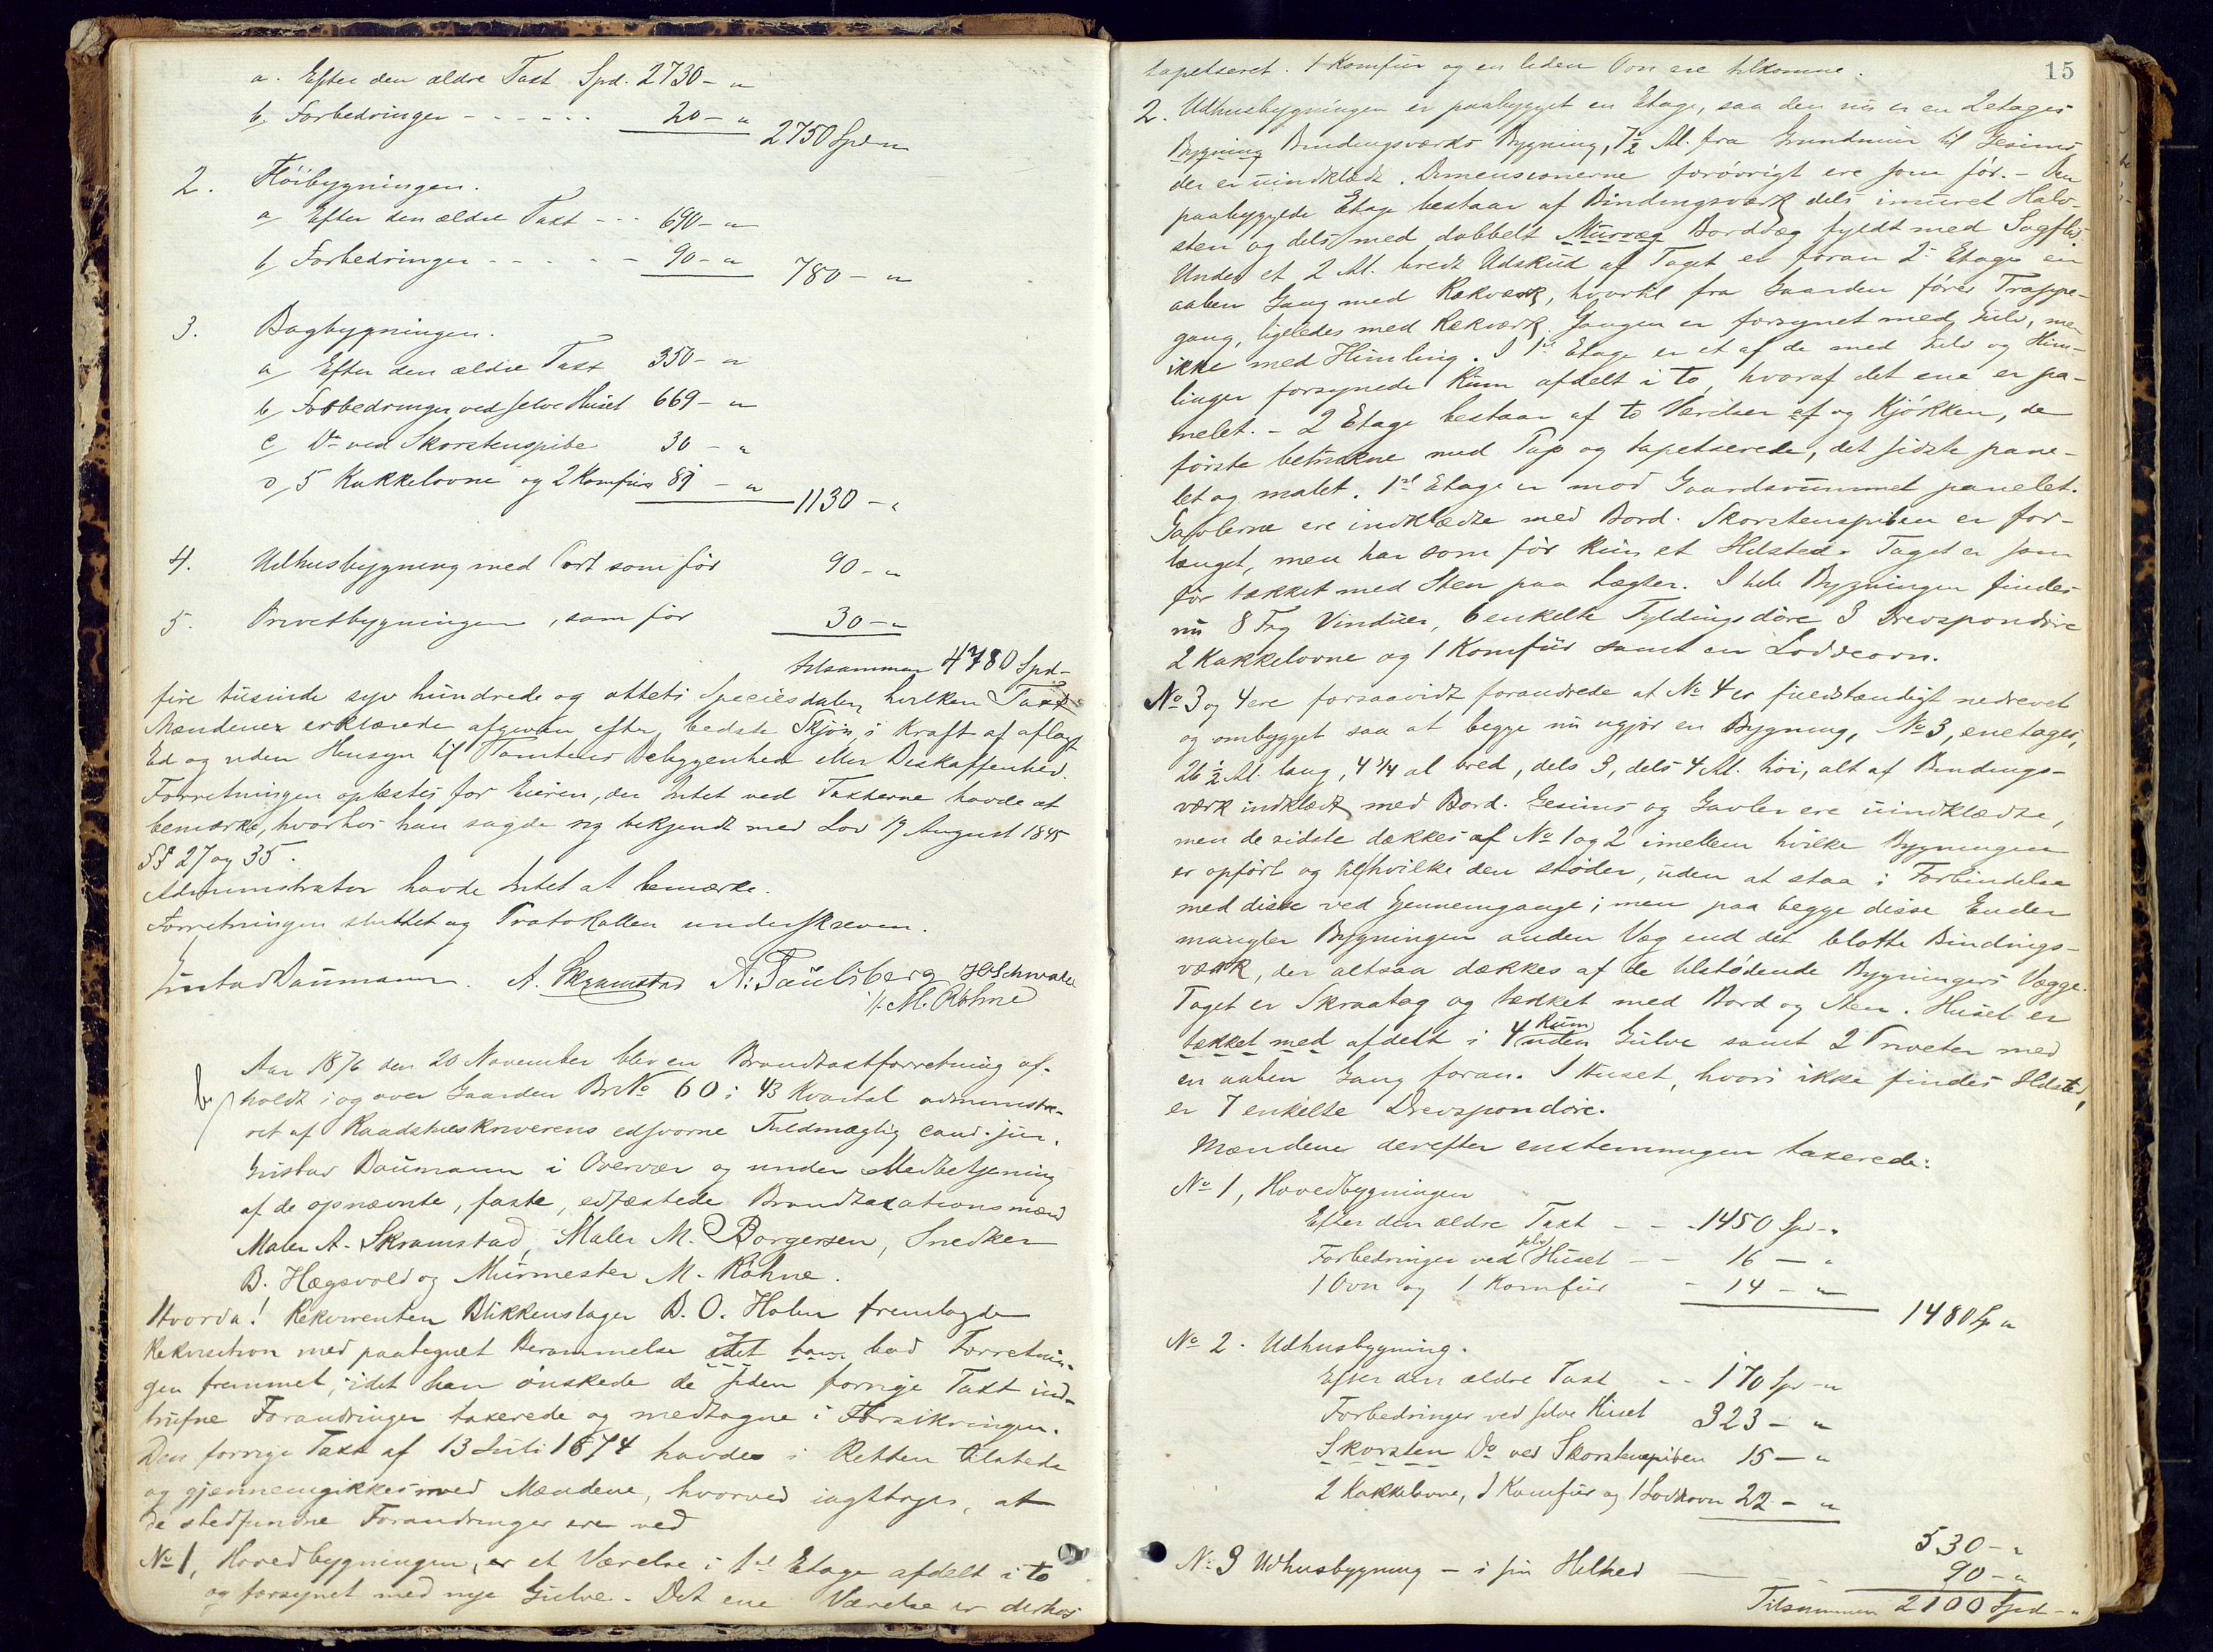 a. Efter den ældre Taxt Spd. 2730 - "
b, Forbedringer - - - - - - 20 - " 2750 Spd "
2. Fløibygningen.
a, Efter den ældre Taxt - - - 690 - "
b, Forbedringer - - - - - 90 - " 780 - "
3. Bagbygningen.
a, Efter den ældre Taxt 350 - "
b, Forbedringer ved selve Huset 669 - "
c, Do ved Skorstenspibe 30 - "
d, 5 Kakkelovne og 2 Komfür 81 - " 1130 - "
4. Udhusbygning med Port som før 90 - "
5. Privetbygningen, som før 30 - "
tilsammen 4780 Spd -
fire tusinde syv hundrede og otteti Speciesdaler, hvilken Taxt
Mændene erklærede afgiven efter bedste Skjøn, i Kraft af aflagt
Ed og uden Hensyn til Tomtens Beliggenhed eller Beskaffenhed.
Forretningen oplæstes for Eieren, der Intet ved Taxterne havde at
bemærke, hvorhos han sagde sig bekjendt med Lov 19 August 1845
§§ 27 og 35.
Administrator havde Intet at bemærke.
Forretningen sluttet og Protokollen underskreven.
Gustav Daumann. A. Skramstad A. Paulsberg H Schwale
M. Røhne
Aar 1876 den 20 November blev en Brandtaxtforretning af-
holdt i og over Gaarden Br No 60 i 43 Kvartal administre-
ret af Raadstueskriverens edsvorne Fuldmægtig cand. jur.
Gustav Daumann i Overvær og under Medbetjening
af de opnævnte, faste, edfæstede Brandtaxationsmænd
Maler A. Skramstad, Maler M. Borgersen, Snedker
B. Hægsvold og Murmester M. Røhne.
Hvorda! Rekvirenten Blikkenslager B. O. Holm fremlagde
Rekvisition med paategnet Berammelse idet han bad Forretnin-
gen fremmet, idet han ønskede de siden forrige Taxt ind-
trufne Forandringer taxerede og medtagne i Forsikringen.
Den forrige Taxt af 13 Juli 1874 havdes i Retten tilstede
og gjennemgikkes med Mændene, hvorved iagttoges, at
de stedfundne Forandringer ere ved
No 1, Hovedbygningen, er et Værelse i 1ste Etage afdelt i to
og forsynet med nye Gulve. Det ene Værelse er derhos
15
tapetseret. 1 Komfur og en liden Ovn ere tilkomne.
2. Udhusbygningen er paabygget en Etage, saa den nu er en 2 etages
Bygning Bindingsværks Bygning, 7½ Al. fra Grundmur til Gesims
der er uindklædt. Dimensionerne forøvrigt ere som før. - Den
paabyggede Etage bestaar af Bindingsværk dels imuret Halv-
sten og dels med dobbelt Murvæg Bordvæg fyldt med Sagflis.
Under et 2 Al. bredt Udskud af Taget er foran 2. Etage en
aaben Gang med Rækværk, hvortil fra Gaarden fører Trappe-
gang, ligeledes med Rækværk. Gangen er forsynet med Gulv, men
ikke med Himling. I 1ste Etage er et af de med Gulv og Him-
linger forsynede Rum afdelt i to, hvoraf det ene er pa-
nelet. - 2 Etage bestaar af to Værelser af og Kjøkken, de
første betrukne med Pap og tapetserede, det sidste pane-
let og malet. 1ste Etage er mod Gaardsrummet panelet.
Gavlerne ere indklædte med Bord. Skorstenspiben er for-
længet, men har som før kun et Ildsted. Taget er som
før takket med Sten paa Lægter. I hele Bygningen findes
nu 8 Fag Vinduer, 6 enkelte Fyldingsdøre 3 Drevspondøre
2 Kakkelovne og 1 Komfür samt en Loddeovn.
No 3 og 4 ere forsaavidt forandrede at No 4 er fuldstændigt nedrevet
og ombygget saa at begge nu ugjør en Bygning, No 3, enetages,
26½ Al. lang, 4¾ al bred, dels 3, dels 4 Al. høi, alt af Bindings-
værk indklædt med Bord. Gesims og Gavler ere uindklædte,
men de sidste dækkes af No 1 og 2 imellem hvilke Bygningen
er opført og til hvilke den støder, uden at staa i Forbindelse
med disse ved Gjennemgange; men paa begge disse Ender
mangler Bygningen anden Væg end det blotte Bindings-
værk, der altsaa dækkes af de tilstødende Bygningers Vægge.
Taget er Skraatag og tækket med Bord og Sten. Huset er
tækket med afdelt i 4 Rum uden Gulve samt 2 Priveter med
en aaben Gang foran. I Huset, hvori ikke findes Ildsted,
er 7 enkelte Drevspondøre.
Mændene derefter enstemmigen taxerede:
No 1, Hovedbygningen
Efter den ældre Taxt - - - 1450 Spd - "
Forbedringer ved selve Huset - - 16 - "
1 Ovn og 1 Komfür - 14 - "
1480 Sp "
No 2. Udhusbygning.
Efter den ældre Taxt - - 170 Spd - "
Forbedringer ved selve Huset 323 - "
Skorsten Do ved Skorstenspiben 15 - "
2 Kakkelovne, 1 Komfür og 1 Lodovn 22 - "
530 - "
No 3 Udhusbygning - i sin Helhed - - 90 - "
Tilsammen 2100 Spd - "